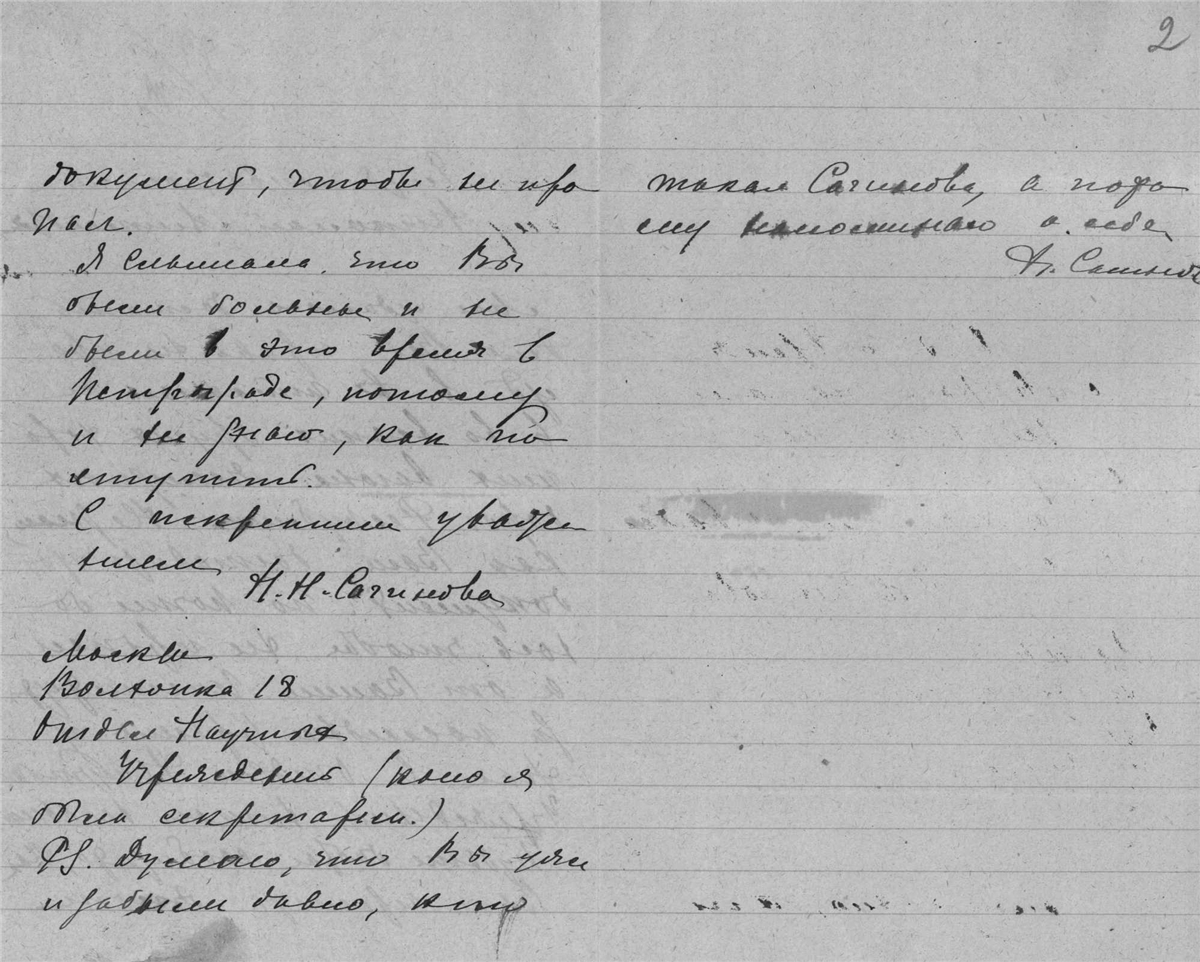 2
документ, чтобы не про
пал.
Я слышала, что Вы
были больны и не
были в это время в
Петрограде, потому
и не знаю, как по
ступить.
С искренним уваже
нием
Н. Н. Сагинова
Москва
Волхонка 18
Отдел Научных
Учреждений (коего я
была секретарем.)
PS. Думаю, что Вы уже
и забыли давно, кто
такая Сагинова, а пото
му напоминаю о себе
Н. Сагинова